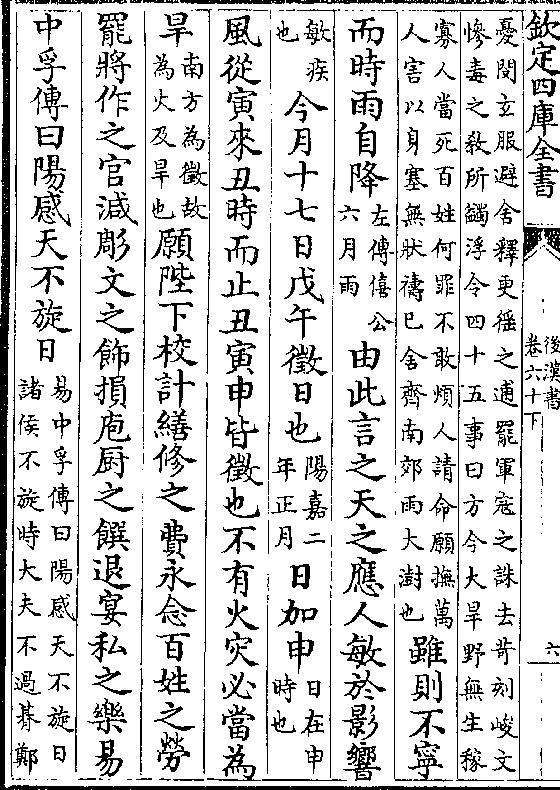 欽定四庫全書
後漢書
卷六十下
六
憂閔玄服避舍釋更徭之逋罷軍寇之誅去苛刻峻文
慘毒之敎所蠲浮令四十五事曰方今大旱野無生稼
寡人當死百姓何罪不敢煩人請命願撫萬
人害以身塞無狀禱已舍齊南郊雨大澍也
雖則不寧
而時雨自降
左傳僖公
六月雨
由此言之天之應人敏於影響
敏疾
也
今月十七日戊午徵日也
陽嘉二
年正月
日加申
日在申
時也
風從寅來丑時而止丑寅申皆徵也不有火灾必當為
旱
南方為徵故
為火及旱也
願陛下校計繕修之費永念百姓之勞
罷將作之官減彫文之飾損庖厨之饌退宴私之樂易
中孚傳曰陽感天不旋日
易中孚傳曰陽感天不旋日
諸侯不旋時大夫不過朞鄭